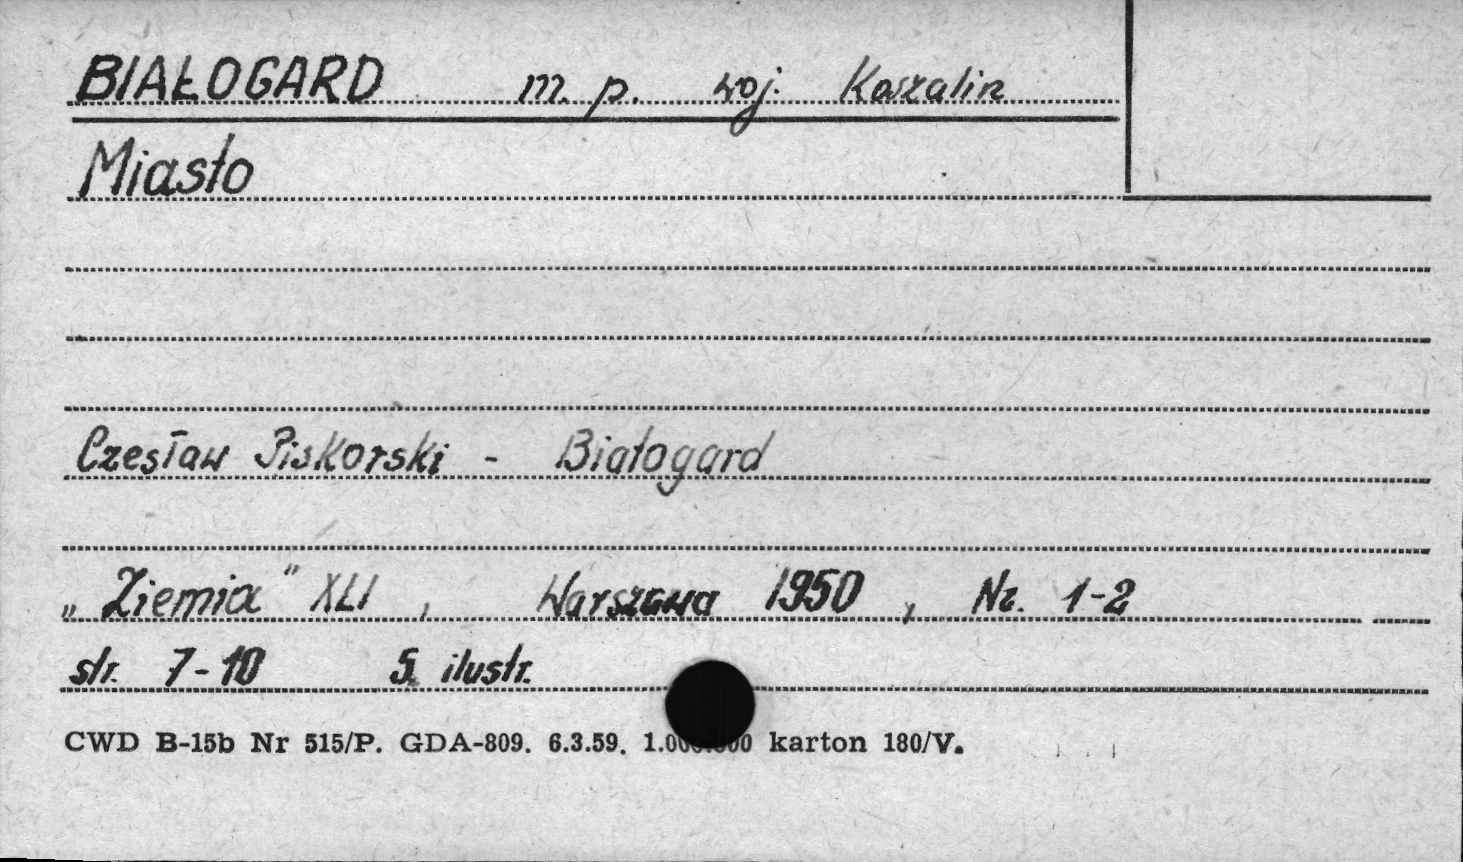 BIAŁOGARD m. p. woj. Koszalin
Miasto
Czesław Piskorski - Białogard
„Ziemia" XLI, Warszawa 1950, Nr. 1-2
str. 7-10 5 ilustr.
CWD B-15b Nr 515/P. GDA-809. 6.3.59. 1.000.000 karton 180/V.